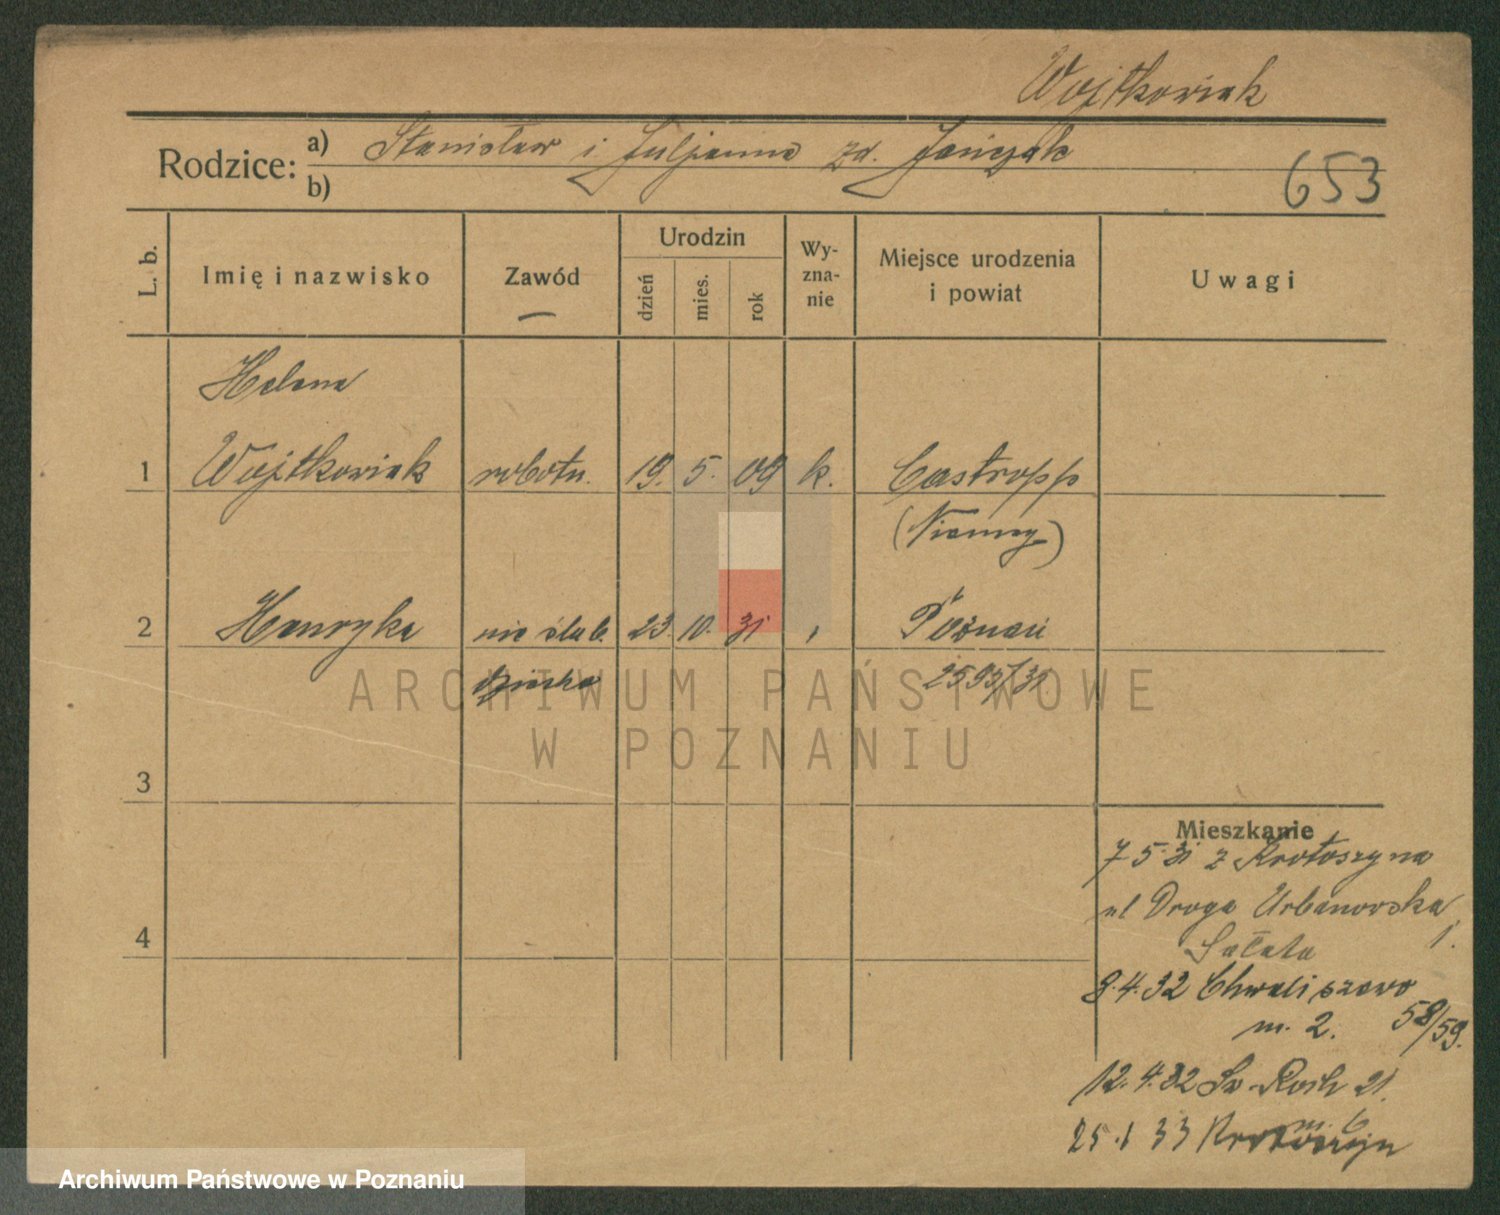 Wojtkowiak
Rodzice: a) Stanisław i Juljanna zd. Jańczak
b)
653
L. b. Imię i nazwisko Zawód Urodzin dzień mies. rok Wy-zna-nie Miejsce urodzenia i powiat Uwagi
Helena
1 Wojtkowiak robotn. 19. 5. 09 k. Castropp
(Niemcy)
2 Henryka nie ślub. 23. 10. 31 Poznań
dziecko 2595/31
ARCHIWUM PAŃSTWOWE
W POZNANIU
3
Mieszkanie
7 5 31 z Krotoszyna
ul Droga Urbanowska
Sałata 1.
4
8.4.32 Chwaliszewo
m. 2. 58/59.
12.4.32 Sw. Roch 21.
m. 6
25.1 33 Krotoszyn
Archiwum Państwowe w Poznaniu